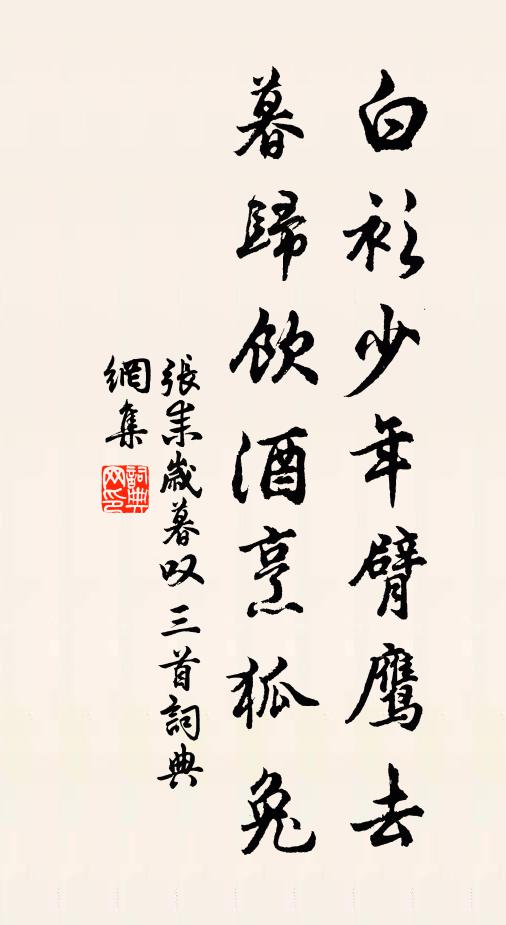 白衫少年臂鷹去
暮歸飲酒烹狐兔
張耒歲暮叹三首詞典
網集
詞典
网印